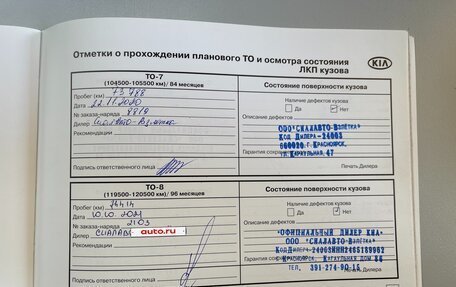 Отметки о прохождении планового ТО и осмотра состояния
ЛКП кузова
KIA
ТО-7
(104500-105500 км)/ 84 месяцев
Пробег (км) 73 788
Дата 22.11.2020
№ заказа-наряда 8819
Дилер Сиалавто-Взлетка
Рекомендации
Подпись ответственного лица
Состояние поверхности кузова
Наличие дефектов кузова
Да Нет
Описание дефектов
ООО "СИАЛАВТО-ВЗЛЁТКА"
Код Дилера-24063
660020 г. Красноярск,
ул. Караульная, 47
Гарантия сохранена
Печать Дилера
ТО-8
(119500-120500 км)/ 96 месяцев
Пробег (км) 76414
Дата 10.10.2021
№ заказа-наряда 2103
Дилер СИАЛАВ
auto.ru
Рекомендации
Подпись ответственного лица
Состояние поверхности кузова
Наличие дефектов кузова
Да Нет
Описание дефектов
"ОФИЦИАЛЬНЫЙ ДИЛЕР КИА"
ООО "СИАЛАВТО-ВЗЛЁТКА"
Красноярск, Караульная
тел. 391-274-90-15
Дилера